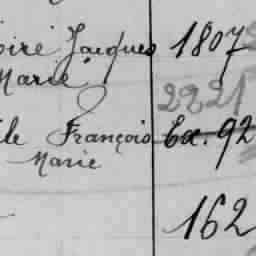 oiré Jacques 1807
Marie
2221
ile François Ex. 92
Marie
162